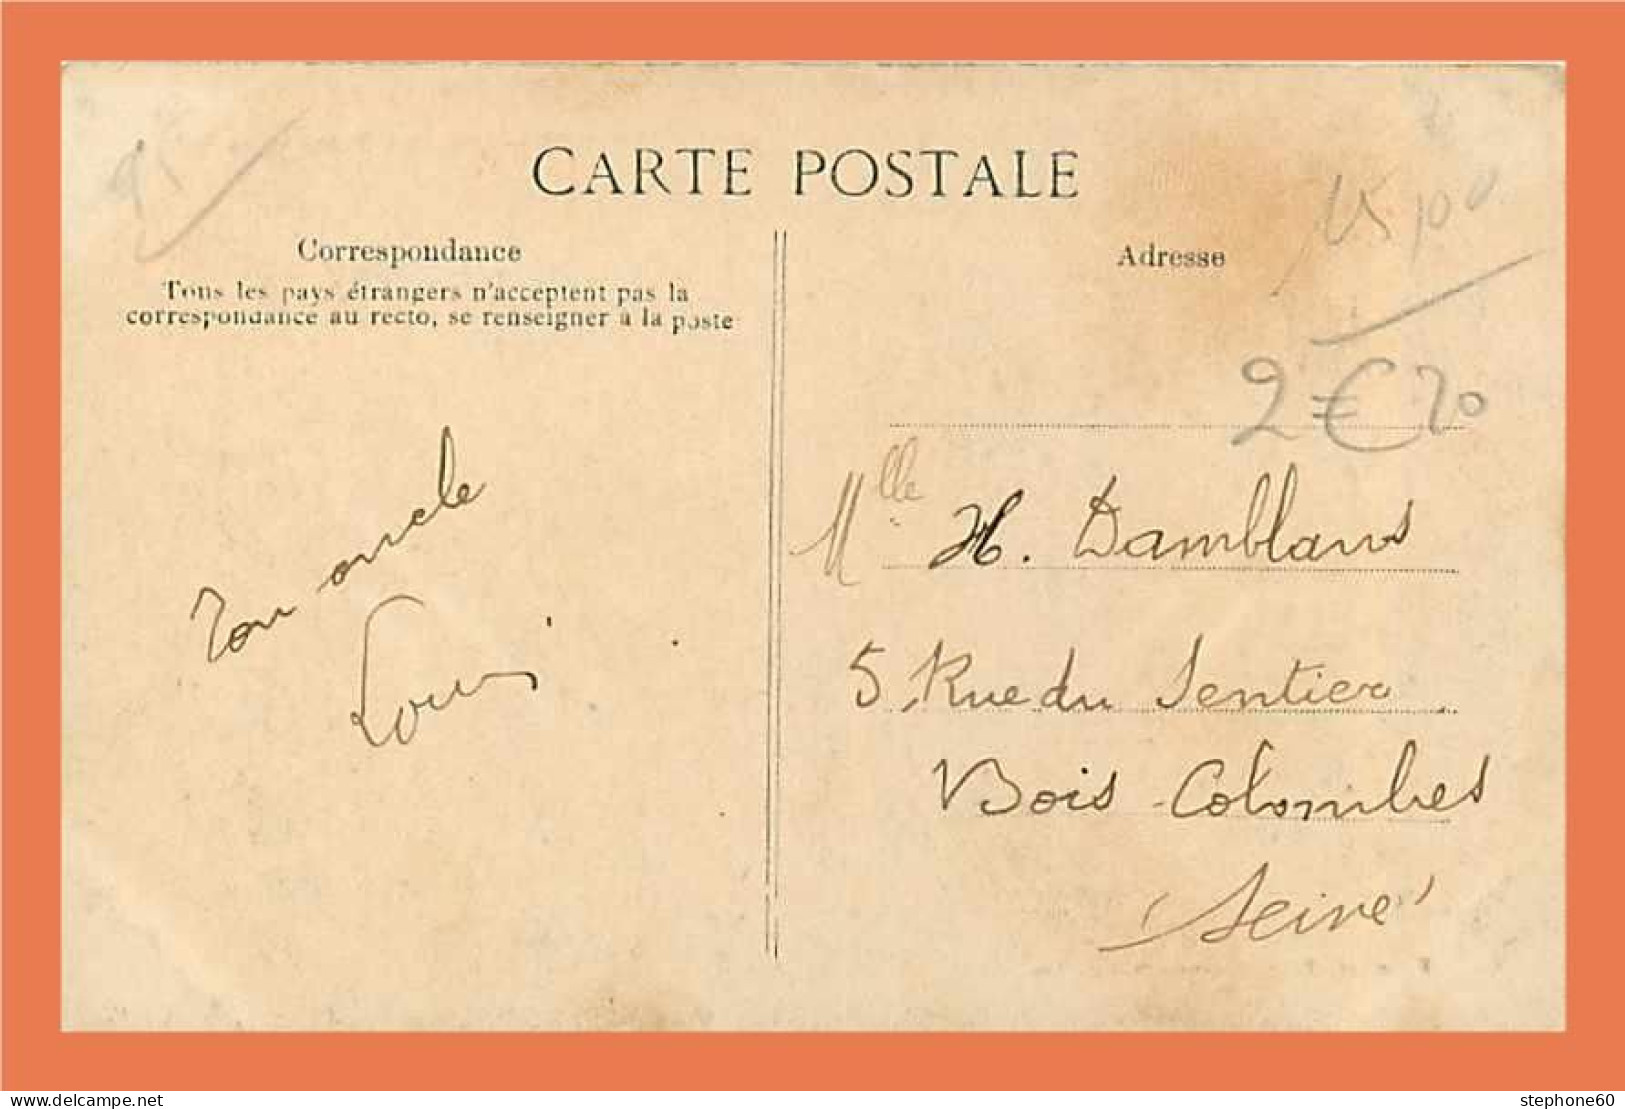 CARTE POSTALE
Correspondance
Tous les pays étrangers n'acceptent pas la
correspondance au recto, se renseigner à la poste
Ton oncle
Louis
Adresse
2€20
Mlle H. Damblans
5, Rue du Sentier
Bois-Colombes
(Seine)
delcampe.net
stephone60